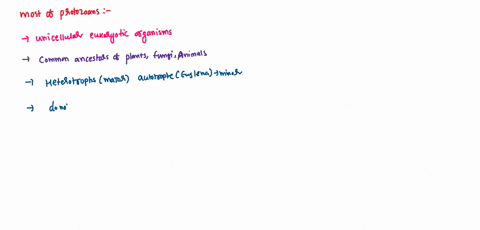 most of protozoans :-
→ unicellular eukaryotic organisms
→ Common ancestors of plants, Fungi, Animals
→ Heterotrophs (major) autotrophs (Euglena) → minor
→ do no